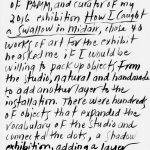 of PAMM, and curator of my
2016 exhibition How I Caught
a Swallow in Midair, chose 40
works of art for the exhibit
he asked me if I would be
willing to pack up objects from
the studio, natural and handmade
to add another layer to the
installation. There were hundreds
of objects that expanded the
vocabulary of the studio and
connected the dots, a shadow
exhibition, adding a layer